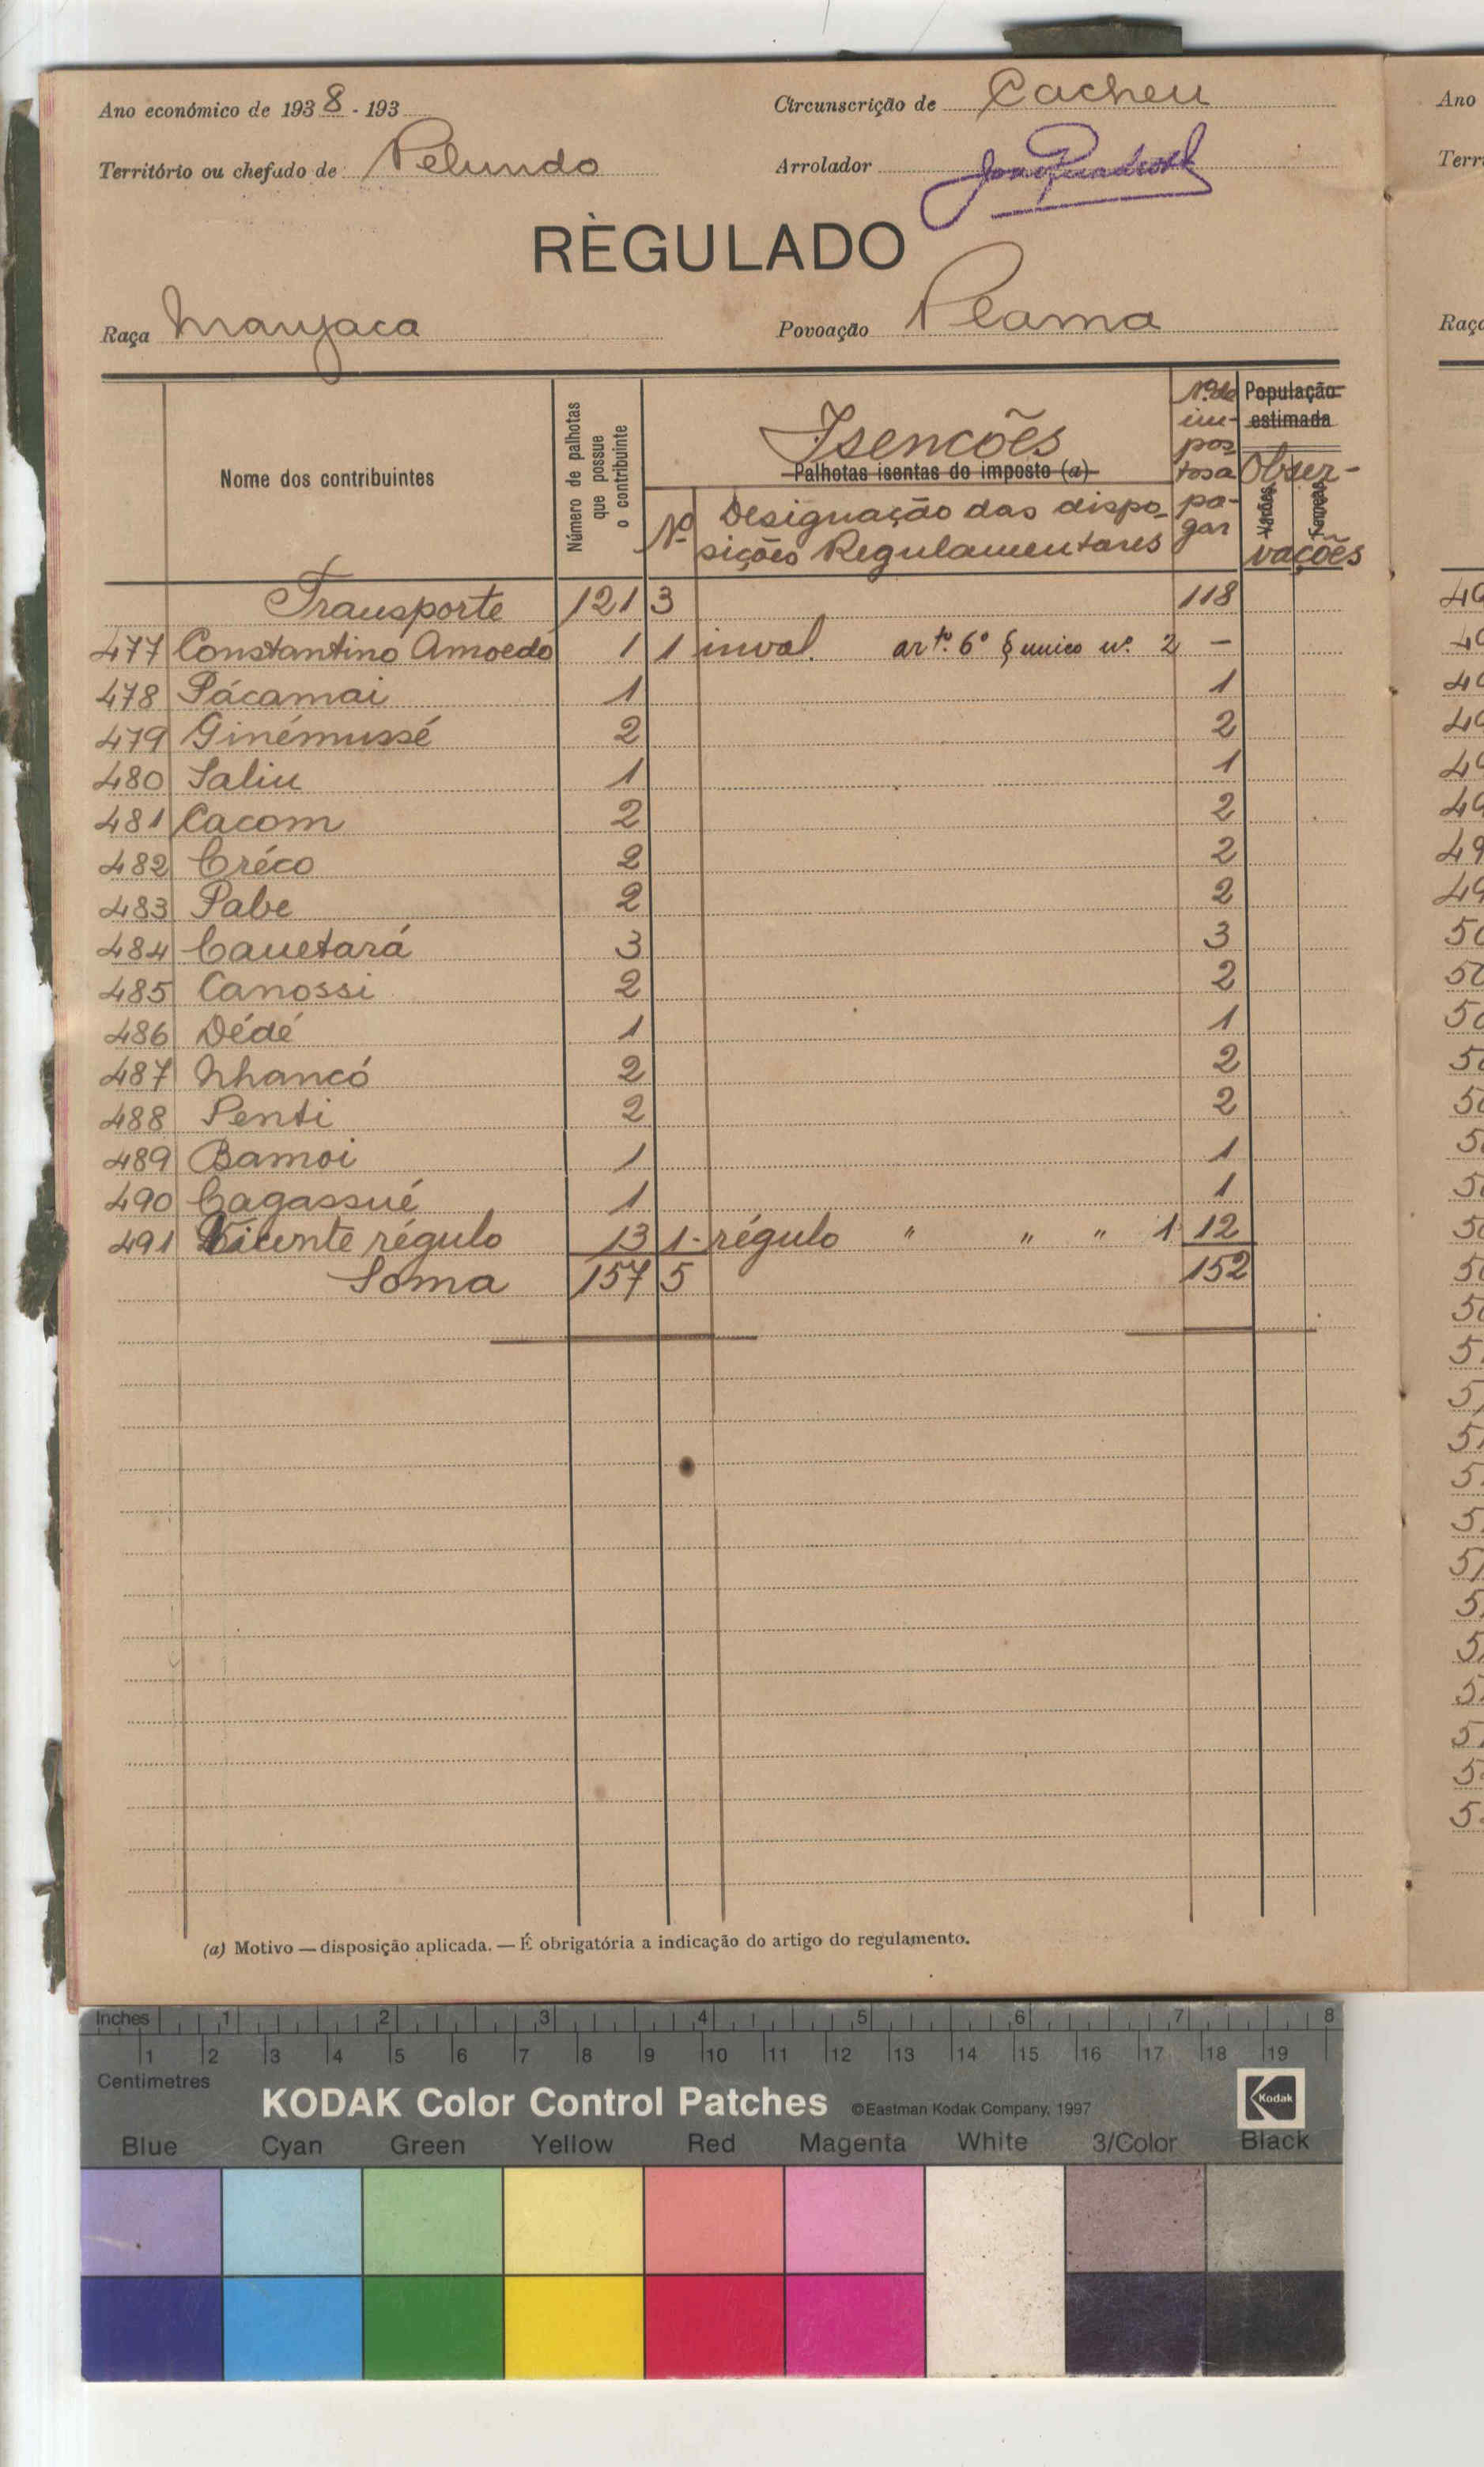 Ano económico de 1938 - 193
Circunscrição de Cacheu
Território ou chefado de Pelundo
Arrolador
RÈGULADO
Raça Manjaca
Povoação Plama
Nome dos contribuintes
Número de palhotas que possue o contribuinte
Isencões
Palhotas isentas do imposto (a)
Nº
Designação das dispo-
sições Regulamentares
Nº de im-
pos-
tos a
pa-
gar
População estimada
Obser-
vações
Varões
Femeas
Transporte 121 3 118
477 Constantino Amoedo 1 1 inval. artº. 6º § unico nº. 2 —
478 Pácamai 1 1
479 Ginémussé 2 2
480 Saliu 1 1
481 Cacom 2 2
482 Créco 2 2
483 Pabe 2 2
484 Cauetará 3 3
485 Canossi 2 2
486 Dédé 1 1
487 Nhancó 2 2
488 Penti 2 2
489 Bamoi 1 1
490 Cagassué 1 1
491 Vicente régulo 13 1- régulo " " " 1 12
Soma 157 5 152
(a) Motivo — disposição aplicada. — É obrigatória a indicação do artigo do regulamento.
Ano
Terri
Raça
Inches 1 2 3 4 5 6 7 8
1 2 3 4 5 6 7 8 9 10 11 12 13 14 15 16 17 18 19
Centimetres
KODAK Color Control Patches ©Eastman Kodak Company, 1997 Kodak
Blue Cyan Green Yellow Red Magenta White 3/Color Black